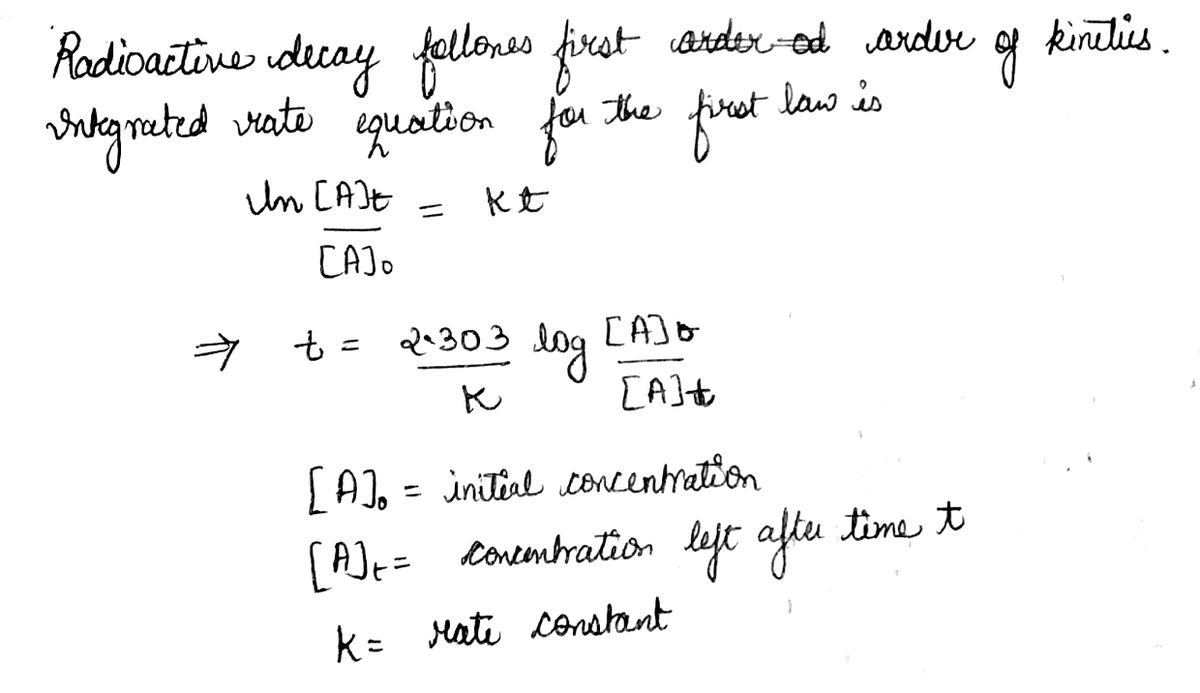 Radioactive decay follones first order od order of kinetics.
Integrated rate equation for the first law is
ln [A]t / [A]0 = kt
⇒ t = 2.303 / K log [A]0 / [A]t
[A]0 = initial concentration
[A]t = concentration left after time t
K = rate constant